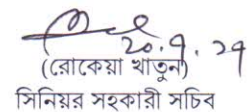 ২০.৭.২৭
(রোকেয়া খাতুন)
সিনিয়র সহকারী সচিব